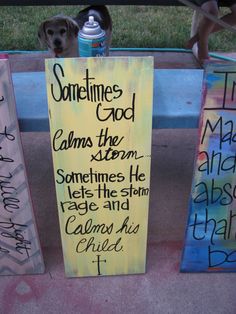 Sometimes
God
Calms the
storm...
Sometimes He
lets the storm
rage and
Calms his
Child.
Ma
and
abs
tha